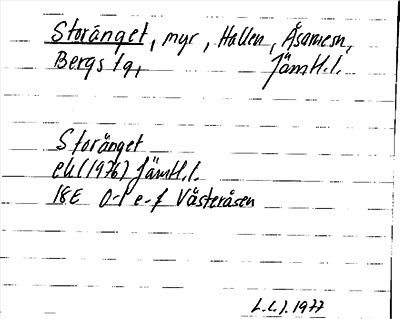 Storänget, myr, Hallen, Åsarnesn,
Bergs tg, Jämtl.l.
Storänget
ek (1976) Jämtl.l.
18E 0-1 e-f Västeråsen
L.L.J. 1977